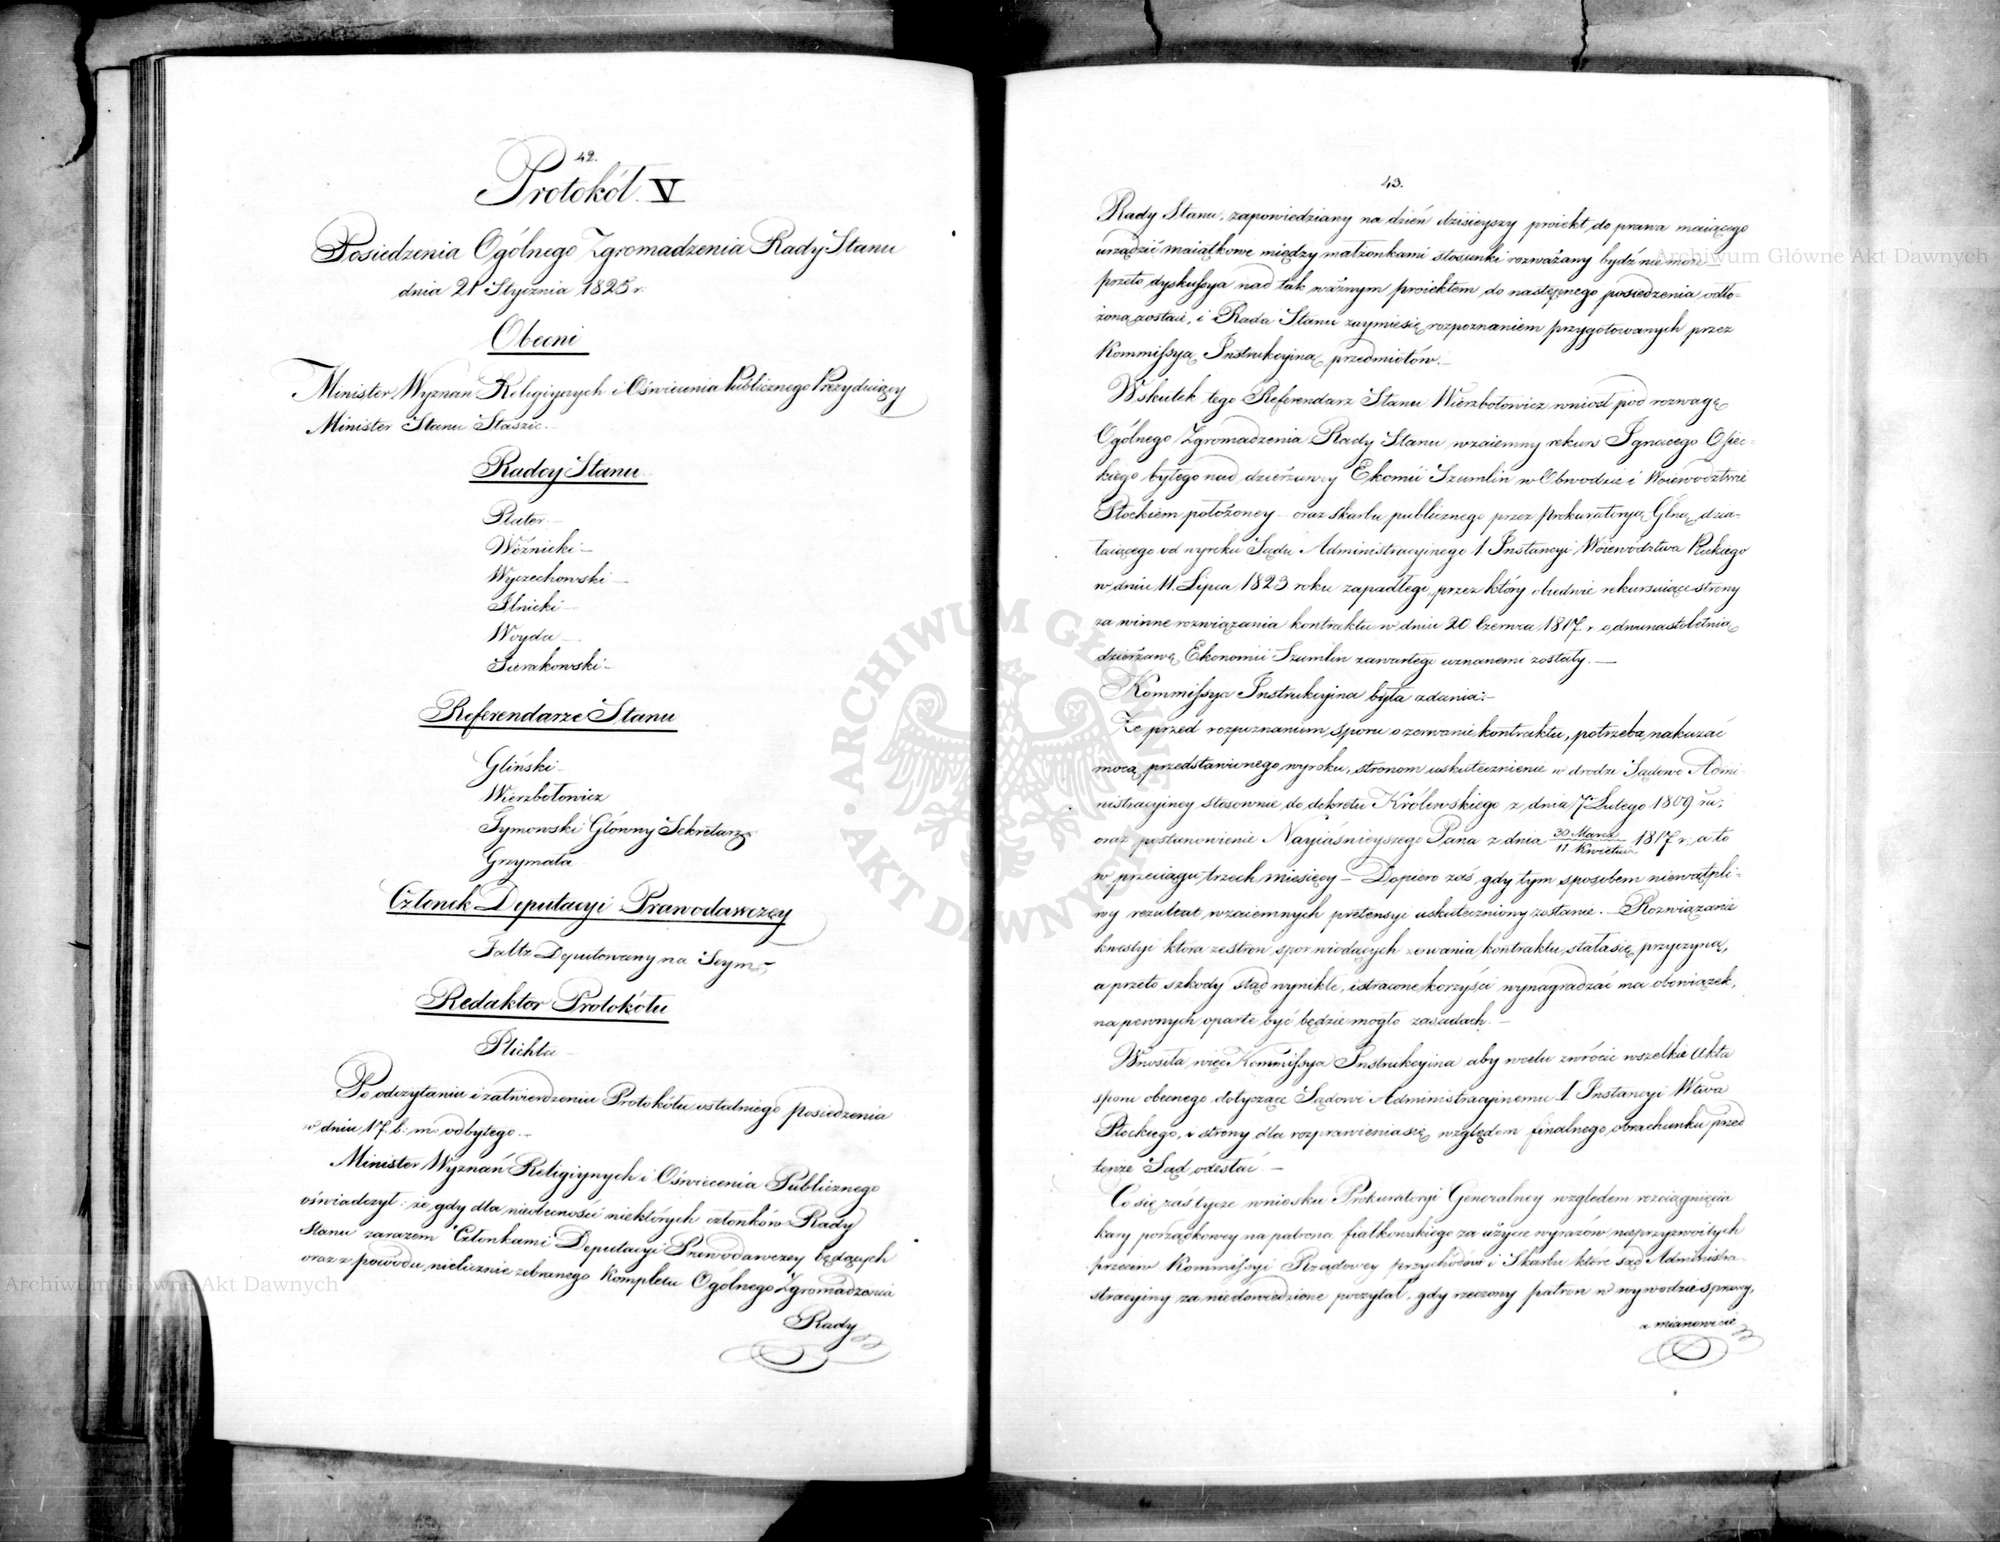 42.
Protokół V
Posiedzenia Ogólnego Zgromadzenia Rady Stanu
dnia 21 Stycznia 1825 r.
Obecni
Minister Wyznań Religiynych i Oświecenia Publicznego Prezyduiący
Minister Stanu Staszic.
Radcy Stanu
Plater
Woźnicki
Wyczechowski
Ilnicki
Woyda
Sierakowski
Referendarze Stanu
Gliński
Wierzbołowicz
Tymowski Główny Sekretarz
Grzymała
Członek Deputacyi Prawodawczey
Faltz Deputowany na Seym
Redaktor Protokółu
Plichta
Po odczytaniu i zatwierdzeniu Protokółu ostatniego posiedzenia
w dniu 17. b: m: odbytego.
Minister Wyznań Religiynych i Oświecenia Publicznego
oświadczył: że gdy dla nieobecności niektórych członków Rady
Stanu zarazem Członkami Deputacyi Prawodawczey będących
oraz z powodu nielicznie zebranego kompletu Ogólnego Zgromadzenia
Rady
43.
Rady Stanu, zapowiedziany na dzień dzisieyszy proiekt do prawa maiącego
urządzić maiątkowe między małżonkami stosunki rozważany bydź nie może
przeto dyskussya nad tak ważnym proiektem do następnego posiedzenia odło-
żoną zostaie, i Rada Stanu zaymie się rozpoznaniem przygotowanych przez
Kommissyą Instrukcyiną przedmiotów.
W skutek tego Referendarz Stanu Wierzbołowicz wniosł pod rozwagę
Ogólnego Zgromadzenia Rady Stanu wzaiemny rekurs Ignacego Osiec-
kiego byłego nad dzierżawcy Ekomii Szumlin w Obwodzie i Woiewodztwie
Płockiem położoney - oraz skarbu publicznego przez Prokuratoryą Glną dzia-
łaiącego od wyroku Sądu Administracyinego 1 Instancyi Woiewództwa Płockiego
w dniu 11 Lipca 1823 roku zapadłego, przez który obiedwie rekursuiące strony
za winne rozwiązania kontraktu w dniu 20 Czerwca 1817 r. o dwunastoletnią
dzierżawę Ekonomii Szumlin zawartego uznanemi zostały.
Kommissya Instrukcyina była zdania:
Że przed rozpoznaniem sporu o zerwanie kontraktu, potrzeba nakazać
mocą przedstawnego wyroku, stronom uskutecznienie w drodze Sądowo Admi-
nistracyiney stosownie do dekretu Królewskiego z dnia 7 Lutego 1809 ru:
oraz postanowienie Nayiaśnieyszego Pana z dnia 30 Marca / 11 Kwietnia 1817 r. a to
w przeciągu trzech miesięcy - Dopiero zaś gdy tym sposobem niewątpli-
wy rezultat wzaiemnych pretensyi uskuteczniony zostanie. - Rozwiązanie
kwestyi która ze stron spor wiodących zerwania kontraktu stała się przyczyną,
a przeto szkody stąd wynikłe, i stracone korzyści wynagradzać ma obowiązek,
na pewnych oparte być będzie mogło zasadach.
Wnosiła więc Kommissya Instrukcyina aby wcelu zwrócić wszelkie Akta
sporu obecnego dotyczące Sądowi Administracyinemu 1 Instancyi Wtwa
Płockiego, i strony dla rozprawienia się względem finalnego obrachunku przed
tenże Sąd odesłać -
Co się zaś tycze wniosku Prokuratoryi Generalney względem rozciągnięcia
kary porządkowey na patrona fiałkowskiego za użycie wyrazów nieprzyzwoitych
przeciw Kommissyi Rządowey przychodów i Skarbu które sąd Administra-
stracyiny za niedowiedzione poczytał, gdy rzeczony patron w wywodzie sprawy,
a mianowicie
Archiwum Główne Akt Dawnych
Archiwum Główne Akt Dawnych
ARCHIWUM GŁÓWNE AKT DAWNYCH